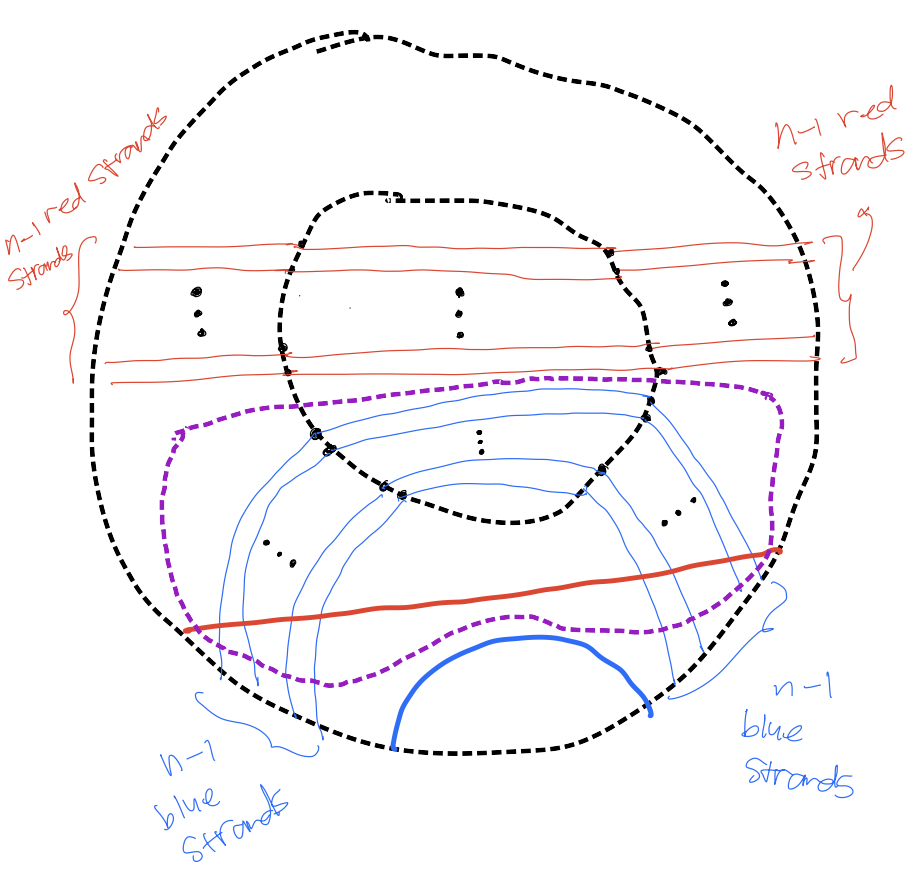 n-1 red strands
n-1 red
strands
n-1
blue
strands
n-1
blue
strands